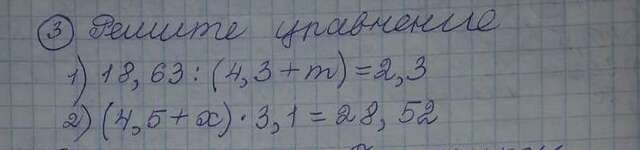 3 Решите уравнение
1) 18,63 : (4,3 + m) = 2,3
2) (4,5 + x) · 3,1 = 28,52